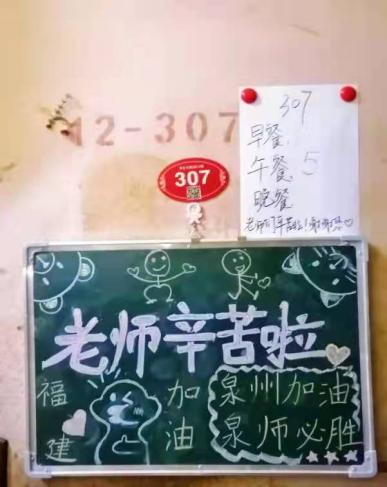 12-307
307
307
早餐
午餐 5
晚餐
老师们辛苦啦!谢谢您♡
老师辛苦啦
福建
加油
泉州加油
泉师必胜